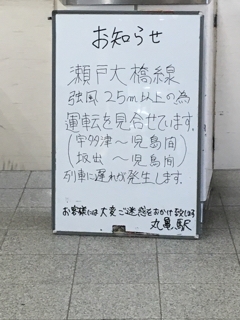 お知らせ
瀬戸大橋線
強風25m以上の為
運転を見合せています。
(宇多津～児島間)
(坂出～児島間)
列車に遅れが発生します。
お客様には大変ご迷惑をおかけ致します
丸亀駅